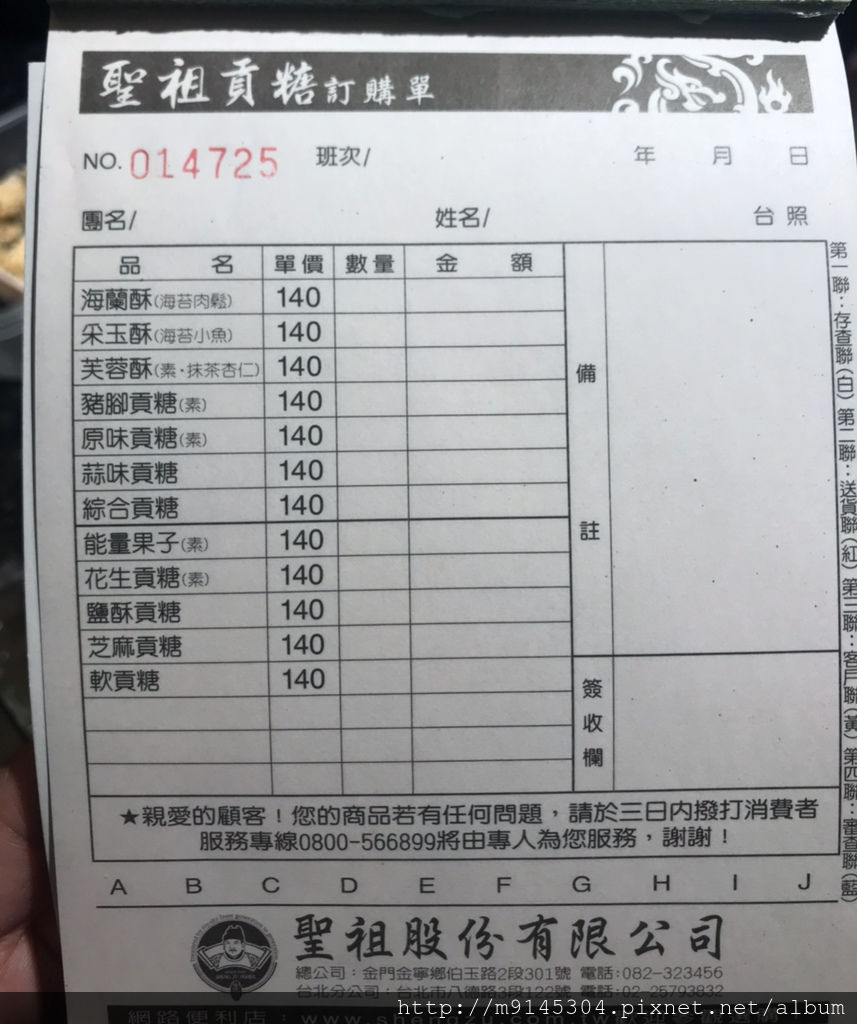 聖祖貢糖訂購單
NO. 014725 班次/ 年 月 日
團名/ 姓名/ 台照
品名 單價 數量 金額
海蘭酥(海苔肉鬆) 140
采玉酥(海苔小魚) 140
芙蓉酥(素·抹茶杏仁) 140
豬腳貢糖(素) 140
原味貢糖(素) 140
蒜味貢糖 140
綜合貢糖 140
能量果子(素) 140
花生貢糖(素) 140
鹽酥貢糖 140
芝麻貢糖 140
軟貢糖 140
備註
簽收欄
第一聯：存查聯(白) 第二聯：送貨聯(紅) 第三聯：客戶聯(黃) 第四聯：審查聯(藍)
★親愛的顧客！您的商品若有任何問題，請於三日內撥打消費者
服務專線0800-566899將由專人為您服務，謝謝！
A B C D E F G H I J
聖祖股份有限公司
總公司：金門金寧鄉伯玉路2段301號 電話:082-323456
台北分公司：台北市八德路3段122號 電話:02-25793832
網路便利店：www.shengzu.com.tw
http://m9145304.pixnet.net/album